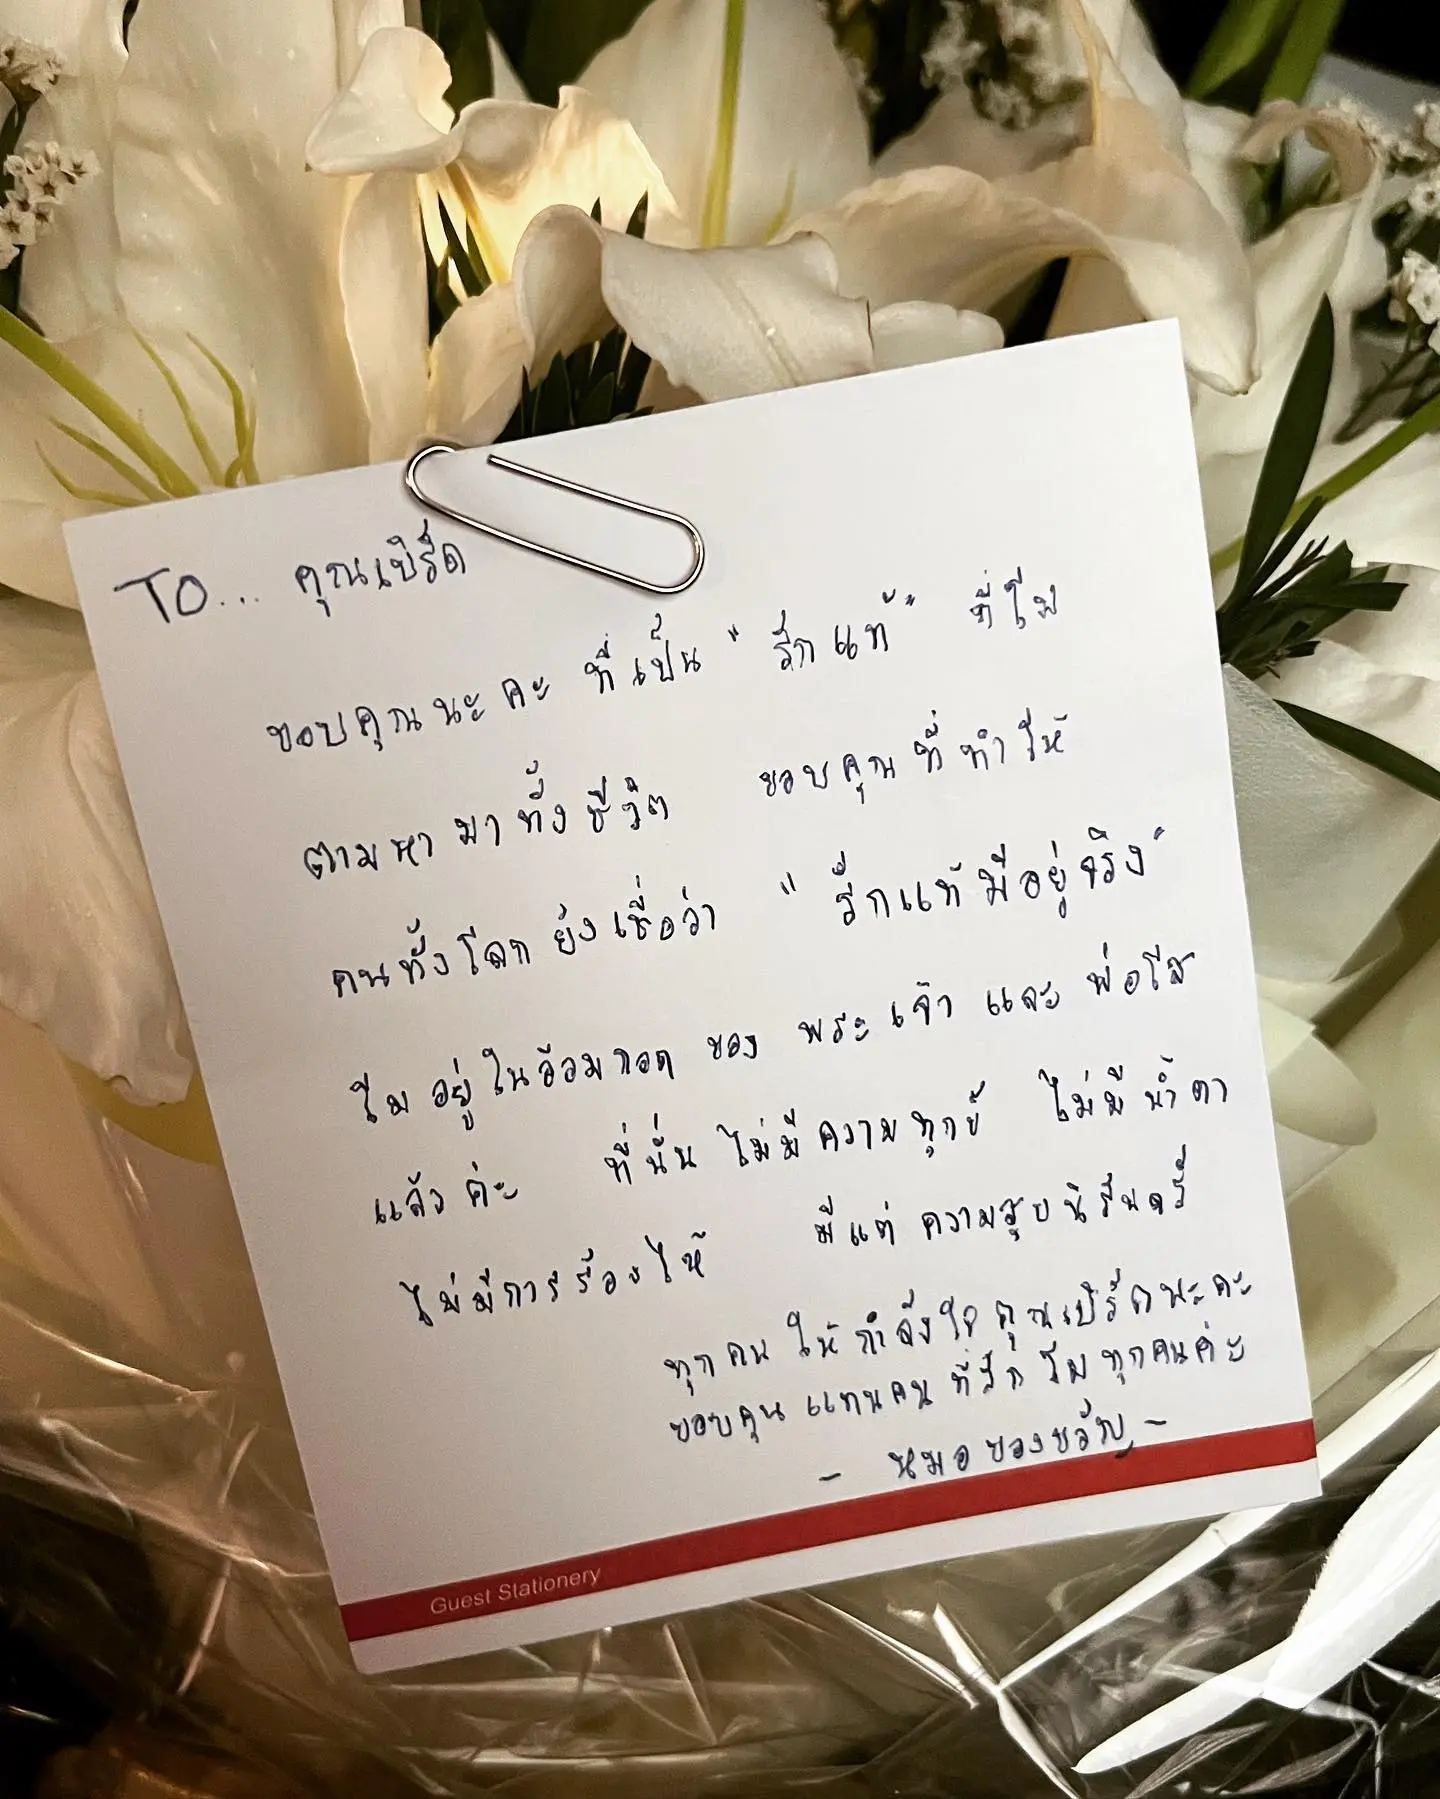 TO... คุณเบิร์ด
ขอบคุณนะคะ ที่เป็น "รักแท้" ที่โม
ตามหามาทั้งชีวิต ขอบคุณที่ทำให้
คนทั้งโลกยังเชื่อว่า "รักแท้มีอยู่จริง"
โมอยู่ในอ้อมกอดของพระเจ้าและพ่อโสะ
แล้วค่ะ ที่นั่นไม่มีความทุกข์ ไม่มีน้ำตา
ไม่มีการร้องไห้ มีแต่ความสุขนิรันดร์
ทุกคนให้กำลังใจคุณเบิร์ดนะคะ
ขอบคุณแทนคนที่รักโมทุกคนค่ะ
- หมอของขวัญ -
Guest Stationery